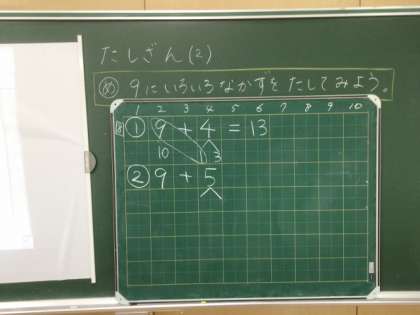 たしざん(2)
め 9にいろいろなかずをたしてみよう。
1 2 3 4 5 6 7 8 9 10
① 9 + 4 = 13
10 1 3
② 9 + 5